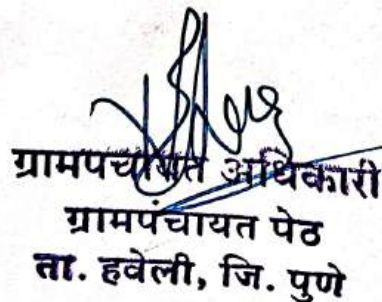 ग्रामपंचायत अधिकारी
ग्रामपंचायत पेठ
ता. हवेली, जि. पुणे